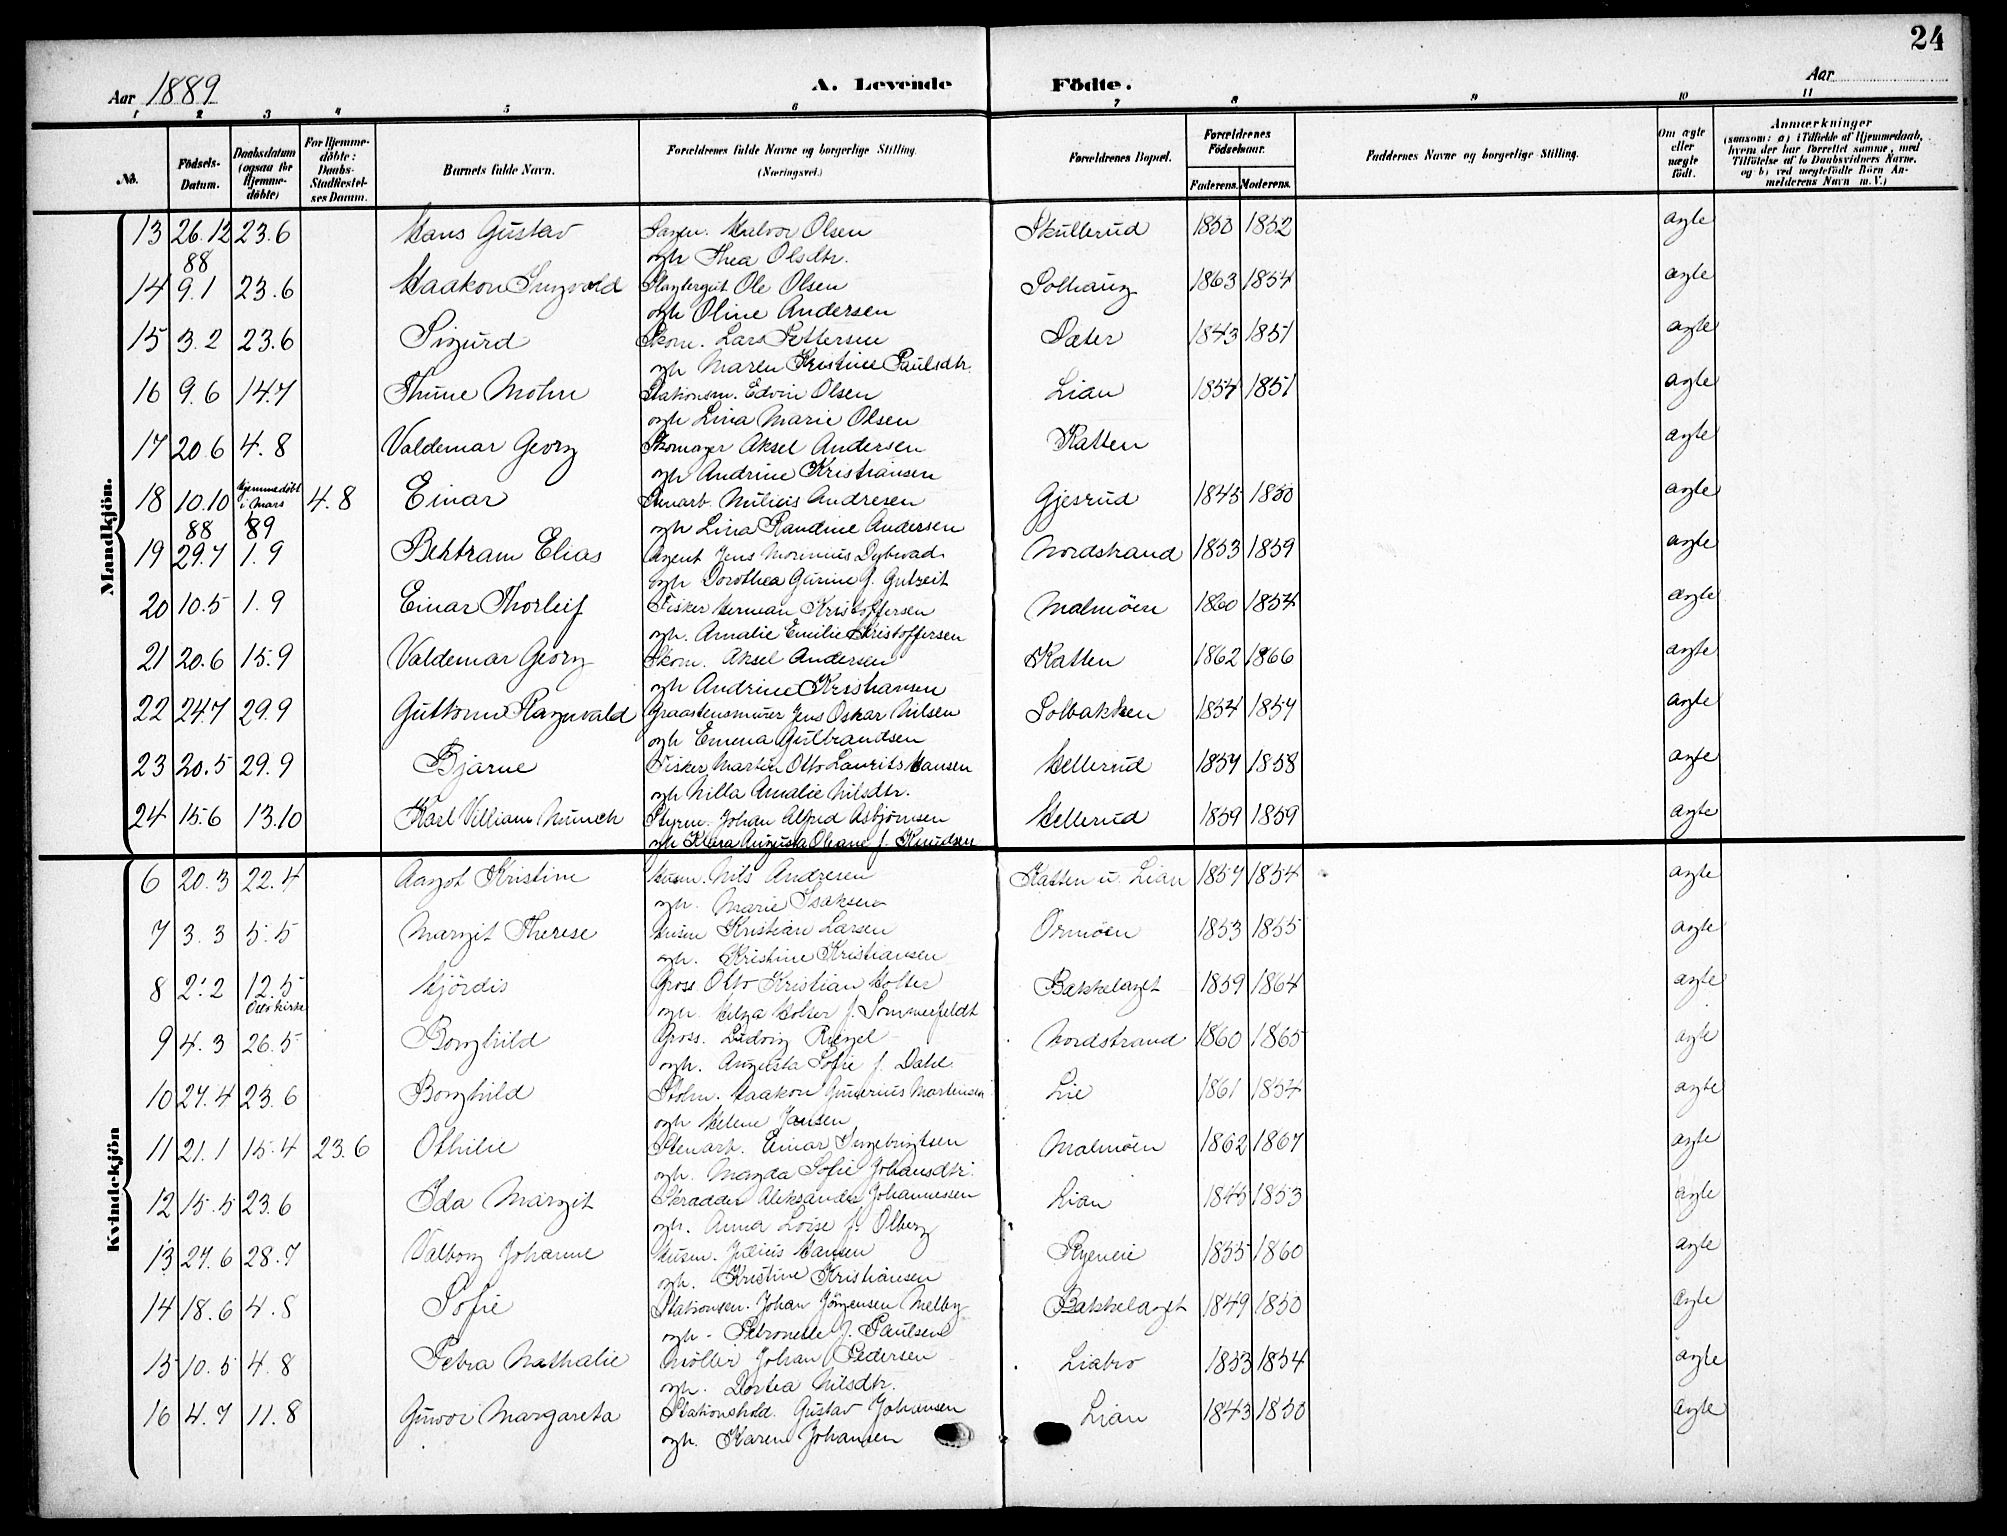 24
Aar 1889
A. Levende Födte.
Aar
1 2 3 4 5 6 7 8 9 10 11
No.
Födsels-Datum.
Daabsdatum (ogsaa for Hjemme-döbte)
For Hjemme-döbte: Daabs-Stadfæstel-ses Datum.
Barnets fulde Navn.
Forældrenes fulde Navne og borgerlige Stilling. (Næringsvei.)
Forældrenes Bopæl.
Forældrenes Födselsaar.
Faderens. Moderens.
Faddernes Navne og borgerlige Stilling.
Om ægte eller uægte födt.
Anmærkninger (saasom: a) i Tilfælde af Hjemmedaab, hvem der har forrettet samme, med Tilföielse af to Daabsvidners Navne, og b) ved uægtefödte Börn An-melderens Navn m. V.)
Mandkjön.
13 26.12 23.6 Hans Gustav Halvor Olsen Skullerud 1850 1852 ægte
88 og h Thea Olsdtr.
14 9.1 23.6 Haakon Ingvald Ole Olsen Solhaug 1863 1854 ægte
og h Oline Andersen
15 3.2 23.6 Sigurd Skom. Lars Pettersen Sæter 1843 1851 ægte
og h Maren Kristine Paulsdtr.
16 9.6 14.7 Thune Mohn Stationsm. Edvin Olsen Lian 1854 1851 ægte
og h Lina Marie Olsen
17 20.6 4.8 Valdemar Georg Skomager Aksel Andersen Katten ægte
og h Andrine Kristiansen
18 10.10 hjemmedöbt i Mars 4.8 Einar Stenarb. Julius Andresen Gjesrud 1845 1850 ægte
88 89 og h Lina Randine Andersen
19 29.7 1.9 Behtram Elias Agent Jens Dybwad Nordstrand 1853 1859 ægte
og h Dorothea Gurine f. Gutzeit
20 10.5 1.9 Einar Thorleif Fisker Herman Kristoffersen Malmöen 1860 1854 ægte
og h. Amalie Emilie Kristoffersen
21 20.6 15.9 Valdemar Georg Skom. Aksel Andersen Katten 1862 1866 ægte
og h Andrine Kristiansen
22 24.7 29.9 Guttorm Ragnvald Graastensmurer Jens Oskar Nilsen Solbakken 1854 1857 ægte
og h Emma Gulbrandsen
23 20.5 29.9 Bjarne Fisker Martin Otto Laurits Hansen Hellerud 1857 1858 ægte
og h Nilla Amalie Nilsdtr.
24 15.6 13.10 Karl Villiam Munch Styrm. Johan Alfred Asbjörnsen Hellerud 1859 1859 ægte
og h Klara Augusta Oleane f. Knudsen
Kvindekjön
6 20.3 22.4 Aagot Kristine Husm. Nils Andresen Katten u. Lian 1857 1854 ægte
og h. Marie Isaksen
7 3.3 5.5 Margit Therese Husm Kristian Larsen Ormöen 1853 1855 ægte
og h. Kristine Kristiansen
8 2.2 12.5 Hjördis Gross. Otto Kristian Holter Bækkelaget 1859 1864 ægte
og h. Helga Holter f. Sommerfeldt
9 4.3 26.5 Borghild Gross. Ludvig Nordstrand 1860 1865 ægte
og h. Augusta Sofie f. Dahl
10 27.4 23.6 Borghild Haakon Gunerius Martinsen Lie 1861 1854 ægte
og h Helene Jansen
11 21.1 15.4 23.6 Othilie Stenarb. Einar Ingebrigtsen Malmöen 1862 1867 ægte
og h. Magda Sofie Johansdtr.
12 15.5 23.6 Ida Margit Skrædder Aleksander Johannesen Lian 1845 1853 ægte
og h. Anna Loise f. Olberg
13 27.6 28.7 Valborg Johanne Husm. Julius Hansen Ryeneie 1855 1860 ægte
og h. Kristine Kristiansen
14 18.6 4.8 Sofie Stationsm. Johan Jörgensen Melby Bækkelaget 1849 1850 ægte
og h. Petronelle f. Paulsen
15 10.5 4.8 Petra Nathalie Möller Johan Pedersen Liabro 1853 1854 ægte
og h. Dortea Nilsdtr.
16 4.7 11.8 Gunvor Margareta Stationshold. Gustav Johansen Lian 1843 1850 ægte
og h. Karen Johansen